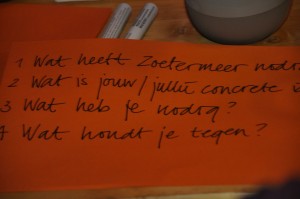 1 Wat heeft Zoetermeer nodi
2 Wat is jouw/jullie concrete
3 Wat heb je nodig?
4 Wat houdt je tegen?